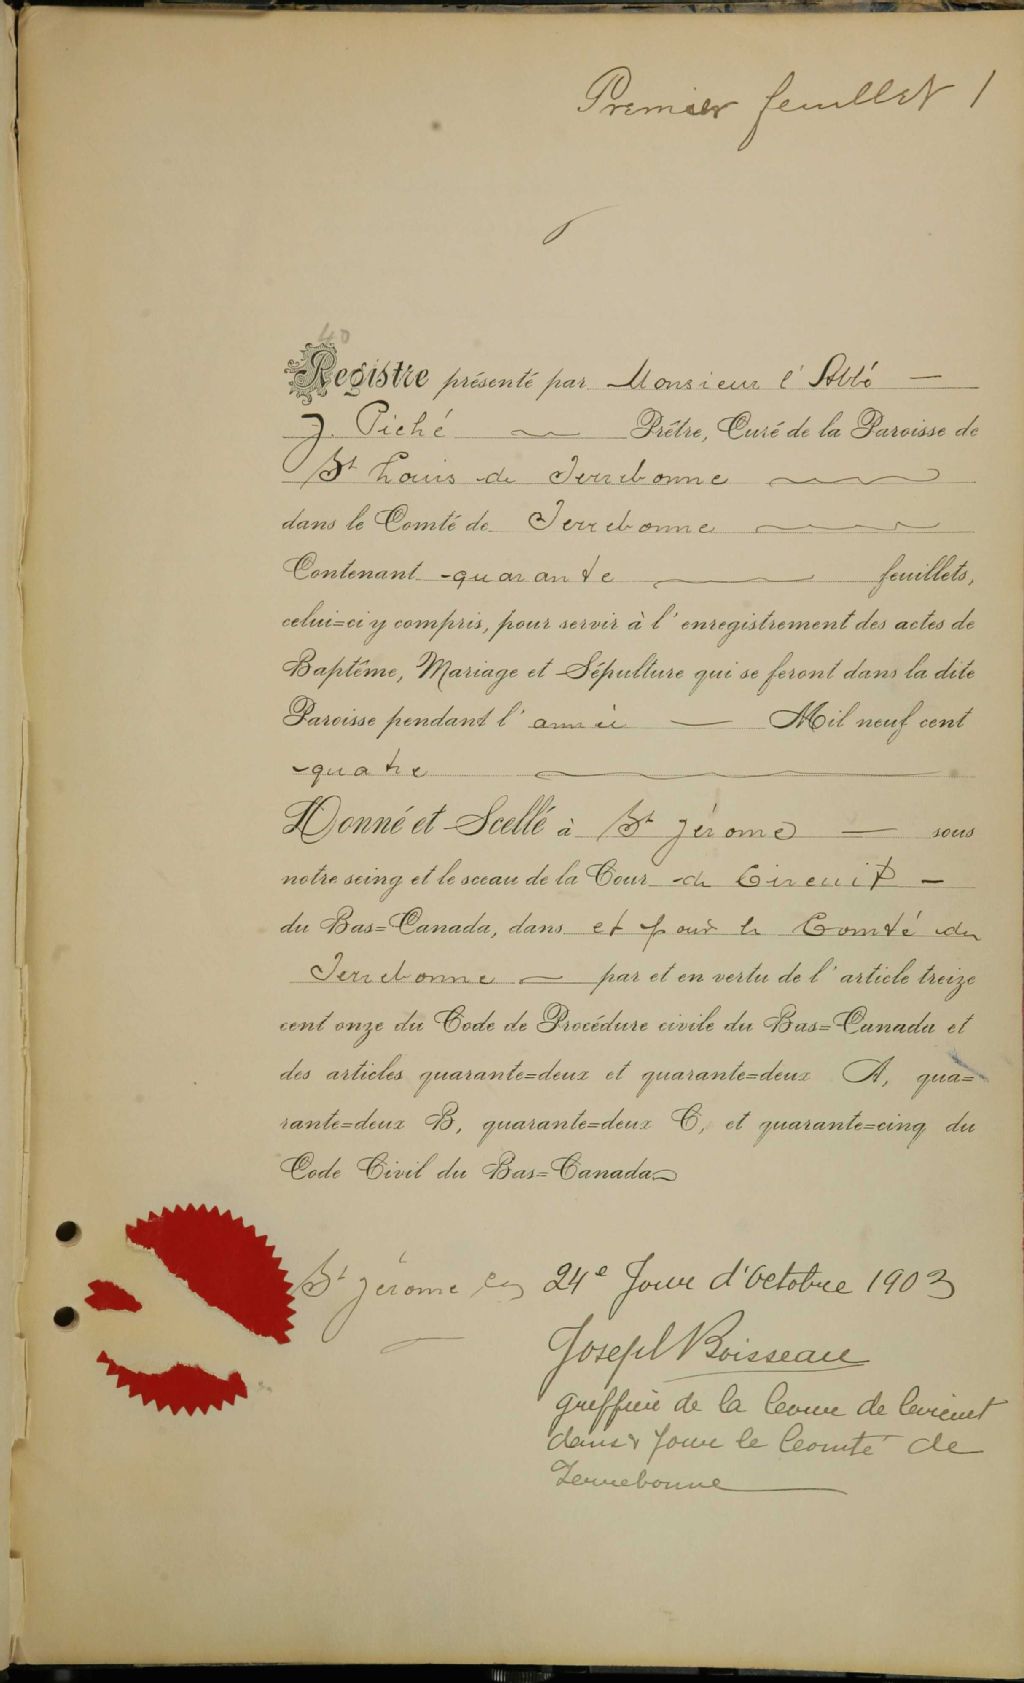 Premier feuillet 1
40
Registre présenté par Monsieur l'Abbé —
J. Piché — Prêtre, Curé de la Paroisse de
St Louis de Terrebonne
dans le Comté de Terrebonne
Contenant quarante feuillets,
celui=ci y compris, pour servir à l'enregistrement des actes de
Baptême, Mariage et Sépulture qui se feront dans la dite
Paroisse pendant l'année — Mil neuf cent
quatre
Donné et Scellé à St Jérome — sous
notre seing et le sceau de la Cour de Circuit —
du Bas=Canada, dans et pour le Comté de
Terrebonne — par et en vertu de l'article treize
cent onze du Code de Procédure civile du Bas=Canada et
des articles quarante=deux et quarante=deux A, qua=
rante=deux B, quarante=deux C, et quarante=cinq du
Code Civil du Bas=Canada
St Jérome ce 24e Jour d'octobre 1903
Joseph Boisseau
greffier de la Cour de Circuit
dans & pour le Comté de
Terrebonne